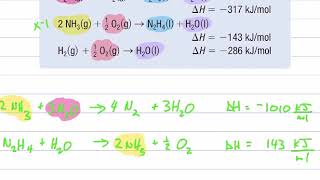 ΔH = −317 kJ/mol
x-1 2 NH₃(g) + ½ O₂(g) → N₂H₄(l) + H₂O(l)
ΔH = −143 kJ/mol
H₂(g) + ½ O₂(g) → H₂O(l) ΔH = −286 kJ/mol
2 NH₃ + → 4 N₂ + 3H₂O ΔH = -1010 kJ/mol
N₂H₄ + H₂O → 2 NH₃ + ½ O₂ ΔH = 143 kJ/mol